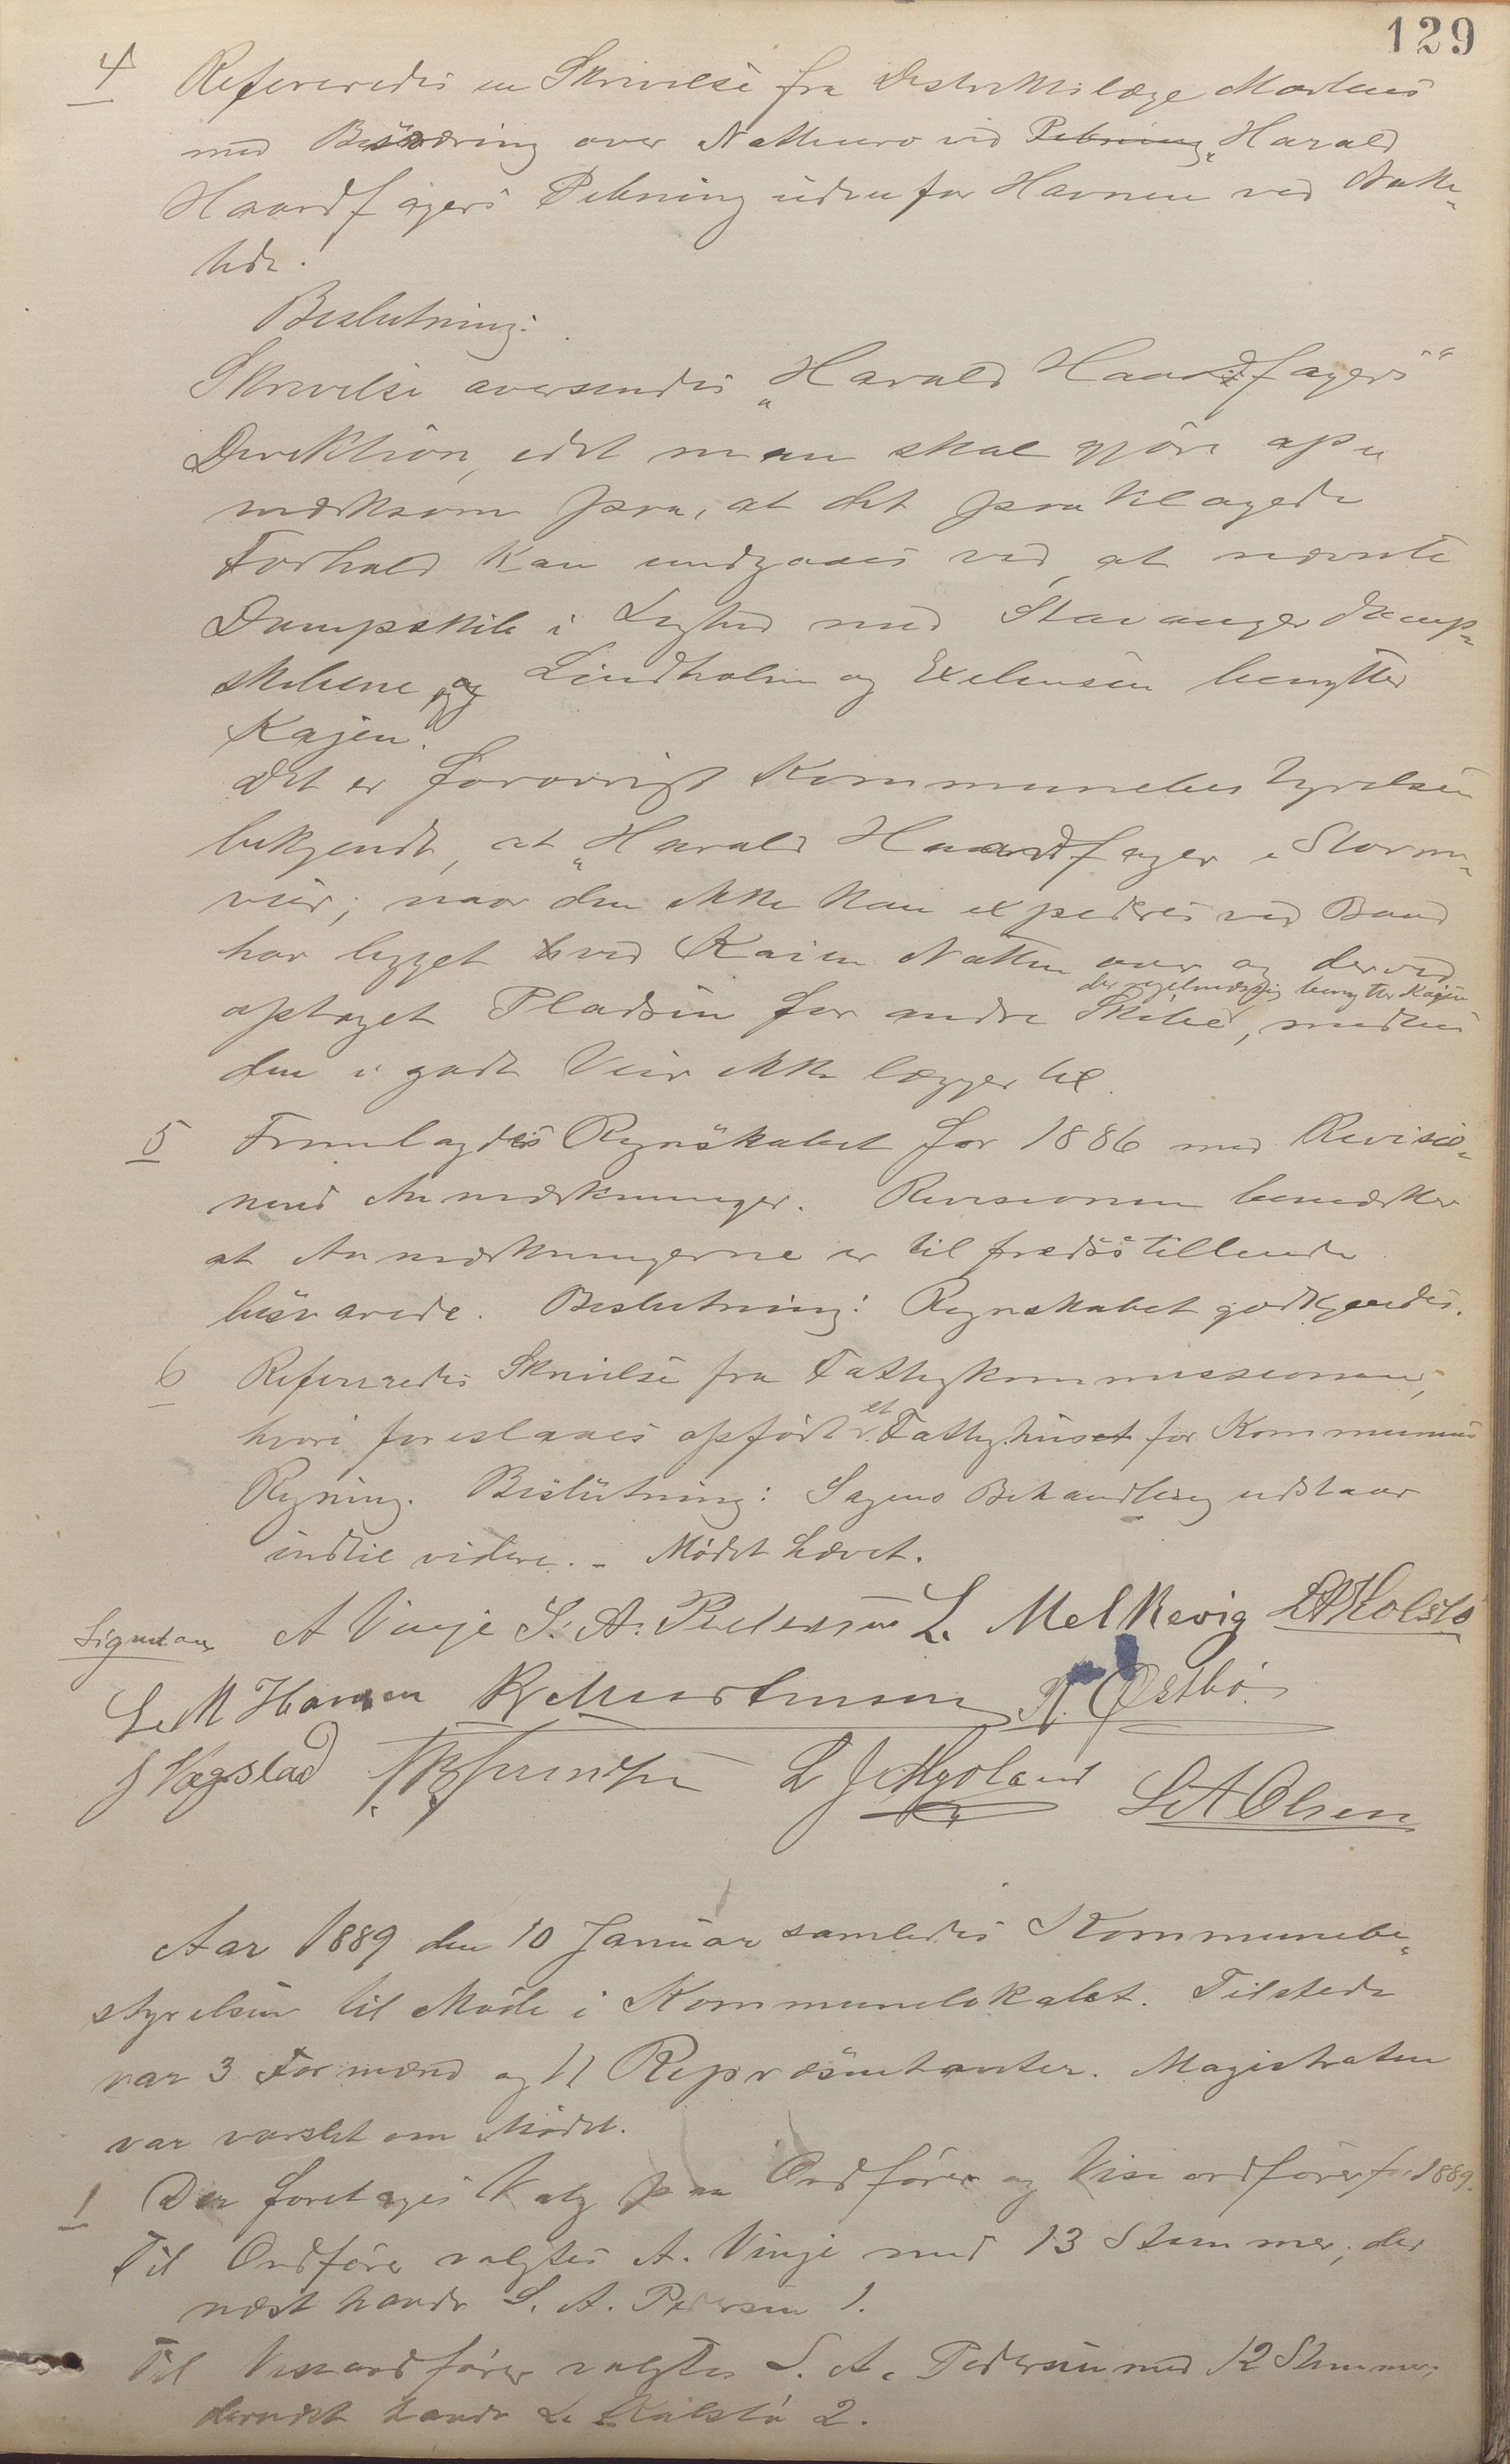 129
4 Refereredes en Skrivelse fra Distriktslæge Martens
med Besværing over Natteuro ved Pebning „Harald
Haardfagers Pibning udenfor Havnen ved Natte„
tide.
Beslutning:
Skrivelse oversendes „Harald Haardfagers"
Direktion, idet man skal gjøre op„
mærksom paa, at det paaklagede
Forhold kan undgaaes ved at nævnte
Dampskib i Lighed med Stavanger Damp„
skibene og Lindholm og Exelensen benytter
Kajen.
Det er forøvrigt Kommunebestyrelsen
bekjendt, at „Harald Haardfager i Storm„
veir, naar den ikke kan expederes ved Baad
har ligget ved Kaien Natten over og derved
der regelmæssig benytter Kajen
optaget Pladsen for andre Skibe, medens
den i godt Veir ikke lægger til.
5 Fremlagdes Regnskabet for 1886 med Revisio„
nens Anmærkninger. Revisionen bemærker
at Anmærkningerne er tilfredsstillende
besvarede. Beslutning: Regnskabet godkjendes.
6 Refereredes Skrivelse fra Fattigkommissionen,
hvori foreslaaes opført et Fattighuset for Kommunens
Regning. Beslutning: Sagens Behandling udstaar
indtil videre. - Mødet hævet.
A Vinje S. A. Pedersen L. Melkevig
L M Hansen R. Østbø
J Vagslad L J Myoland L A Olsen
Aar 1889 den 10 Januar samledes Kommunebe„
styrelsen til Møde i Kommunelokalet. Tilstede
var 3 Formænd og 11 Repræsentanter. Magistraten
var varslet om Mødet.
1 Der foretages Valg paa Ordfører og Viseordfører for 1889.
Til Ordfører valgtes A. Vinje med 13 Stemmer, der
næst havde S. A. Pedersen 1.
Til Viseordfører valgtes S. A. Pedersen med 12 Stemmer,
dernæst havde L. Kolstø 2.